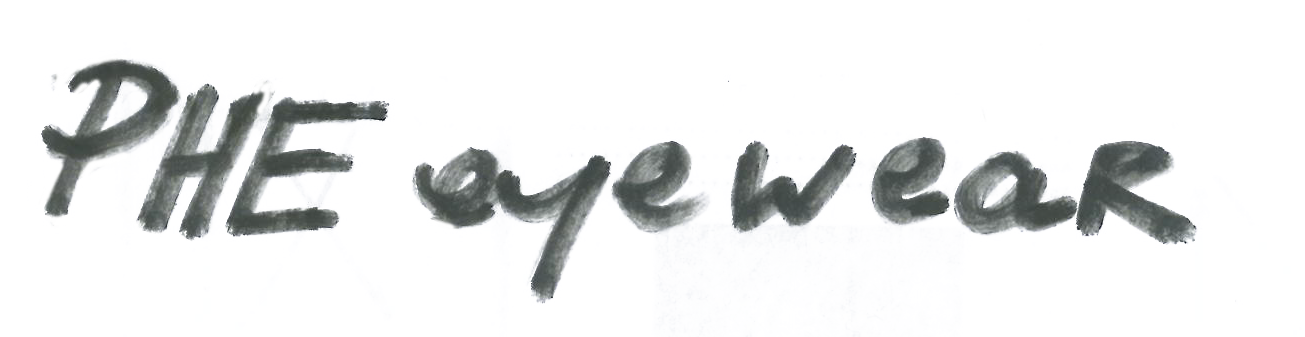 PHE eyewear